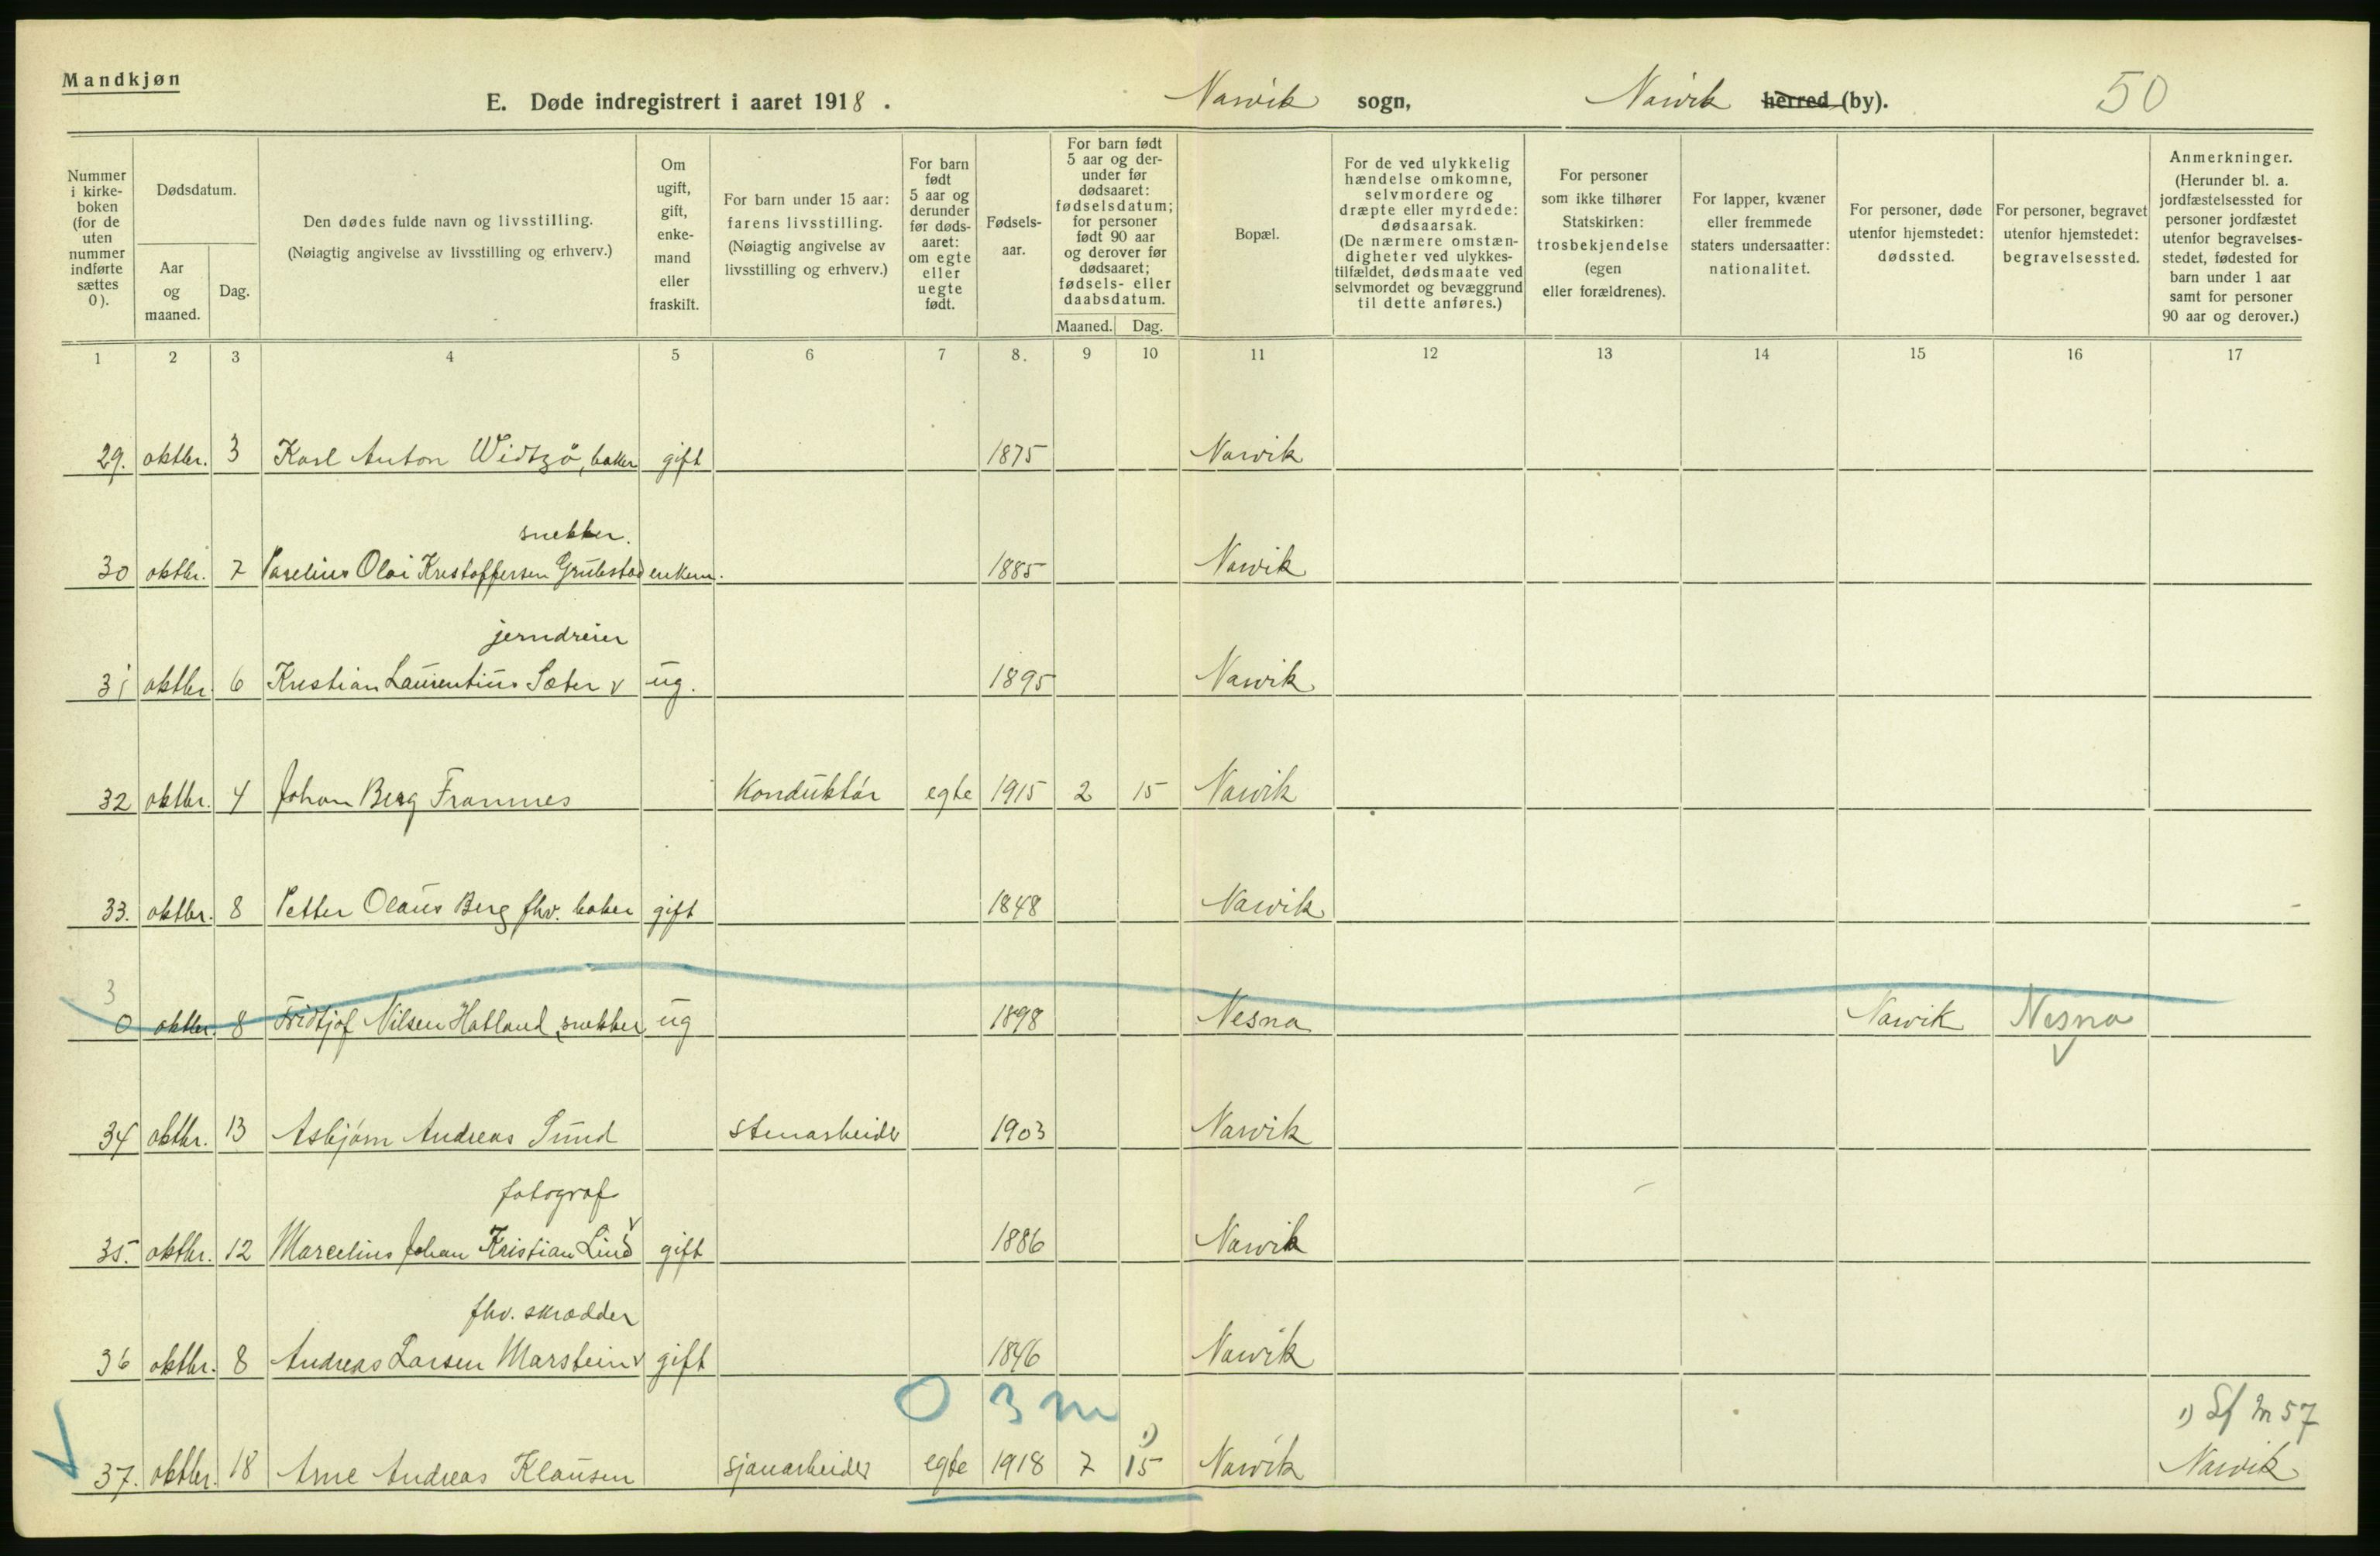 Mandkjøn
E. Døde indregistrert i aaret 1918. Narvik sogn, Narvik herred (by). 50
Nummer i kirkeboken (for de uten nummer indførte sættes 0).
Dødsdatum.
Aar og maaned.
Dag.
Den dødes fulde navn og livsstilling. (Nøiagtig angivelse av livsstilling og erhverv.)
Om ugift, gift, enkemand eller fraskilt.
For barn under 15 aar: farens livsstilling. (Nøiagtig angivelse av livsstilling og erhverv.)
For barn født 5 aar og derunder før dødsaaret: om egte eller uegte født.
Fødselsaar.
For barn født 5 aar og derunder før dødsaaret: fødselsdatum; for personer født 90 aar og derover før dødsaaret; fødsels- eller daabsdatum.
Maaned. Dag.
Bopæl.
For de ved ulykkelig hændelse omkomne, selvmordere og dræpte eller myrdede: dødsaarsak. (De nærmere omstændigheter ved ulykkestilfældet, dødsmaate ved selvmordet og bevæggrund til dette anføres.)
For personer som ikke tilhører Statskirken: trosbekjendelse (egen eller forældrenes).
For lapper, kvæner eller fremmede staters undersaatter: nationalitet.
For personer, døde utenfor hjemstedet: dødssted.
For personer, begravet utenfor hjemstedet: begravelsessted.
Anmerkninger. (Herunder bl. a. jordfæstelsessted for personer jordfæstet utenfor begravelsesstedet, fødested for barn under 1 aar samt for personer 90 aar og derover.)
1 2 3 4 5 6 7 8. 9 10 11 12 13 14 15 16 17
29. oktbr. 3 Karl Anton Widtzö, baker gift 1875 Narvik
snekker.
30 oktbr. 7 Olai Kristoffersen Grubestad enkem. 1885 Narvik
jerndreier
31 oktbr. 6 Kristian Laurentius Sæter v ug. 1895 Narvik
32 oktbr. 4 Johan Berg Framnes Konduktør egte 1915 2 15 Narvik
33. oktbr. 8 Petter Olaus Berg fhv. baker gift 1848 Narvik
3
0 oktbr. 8 Fridtjof Nilsen Hatland, snekker ug 1898 Nesna Narvik Nesna
34 oktbr. 13 Asbjørn Andreas Sund stenarbeider 1903 Narvik
fotograf
35. oktbr. 12 Marcelius Johan Kristian Lind gift 1886 Narvik
fhv. skrædder
36 oktbr. 8 Andreas Larsen Marstein v gift 1846 Narvik
0 3 m
1) Sf M 57
37. oktbr. 18 Arne Andreas Klausen sjauarbeider egte 1918 7 15 1) Narvik Narvik